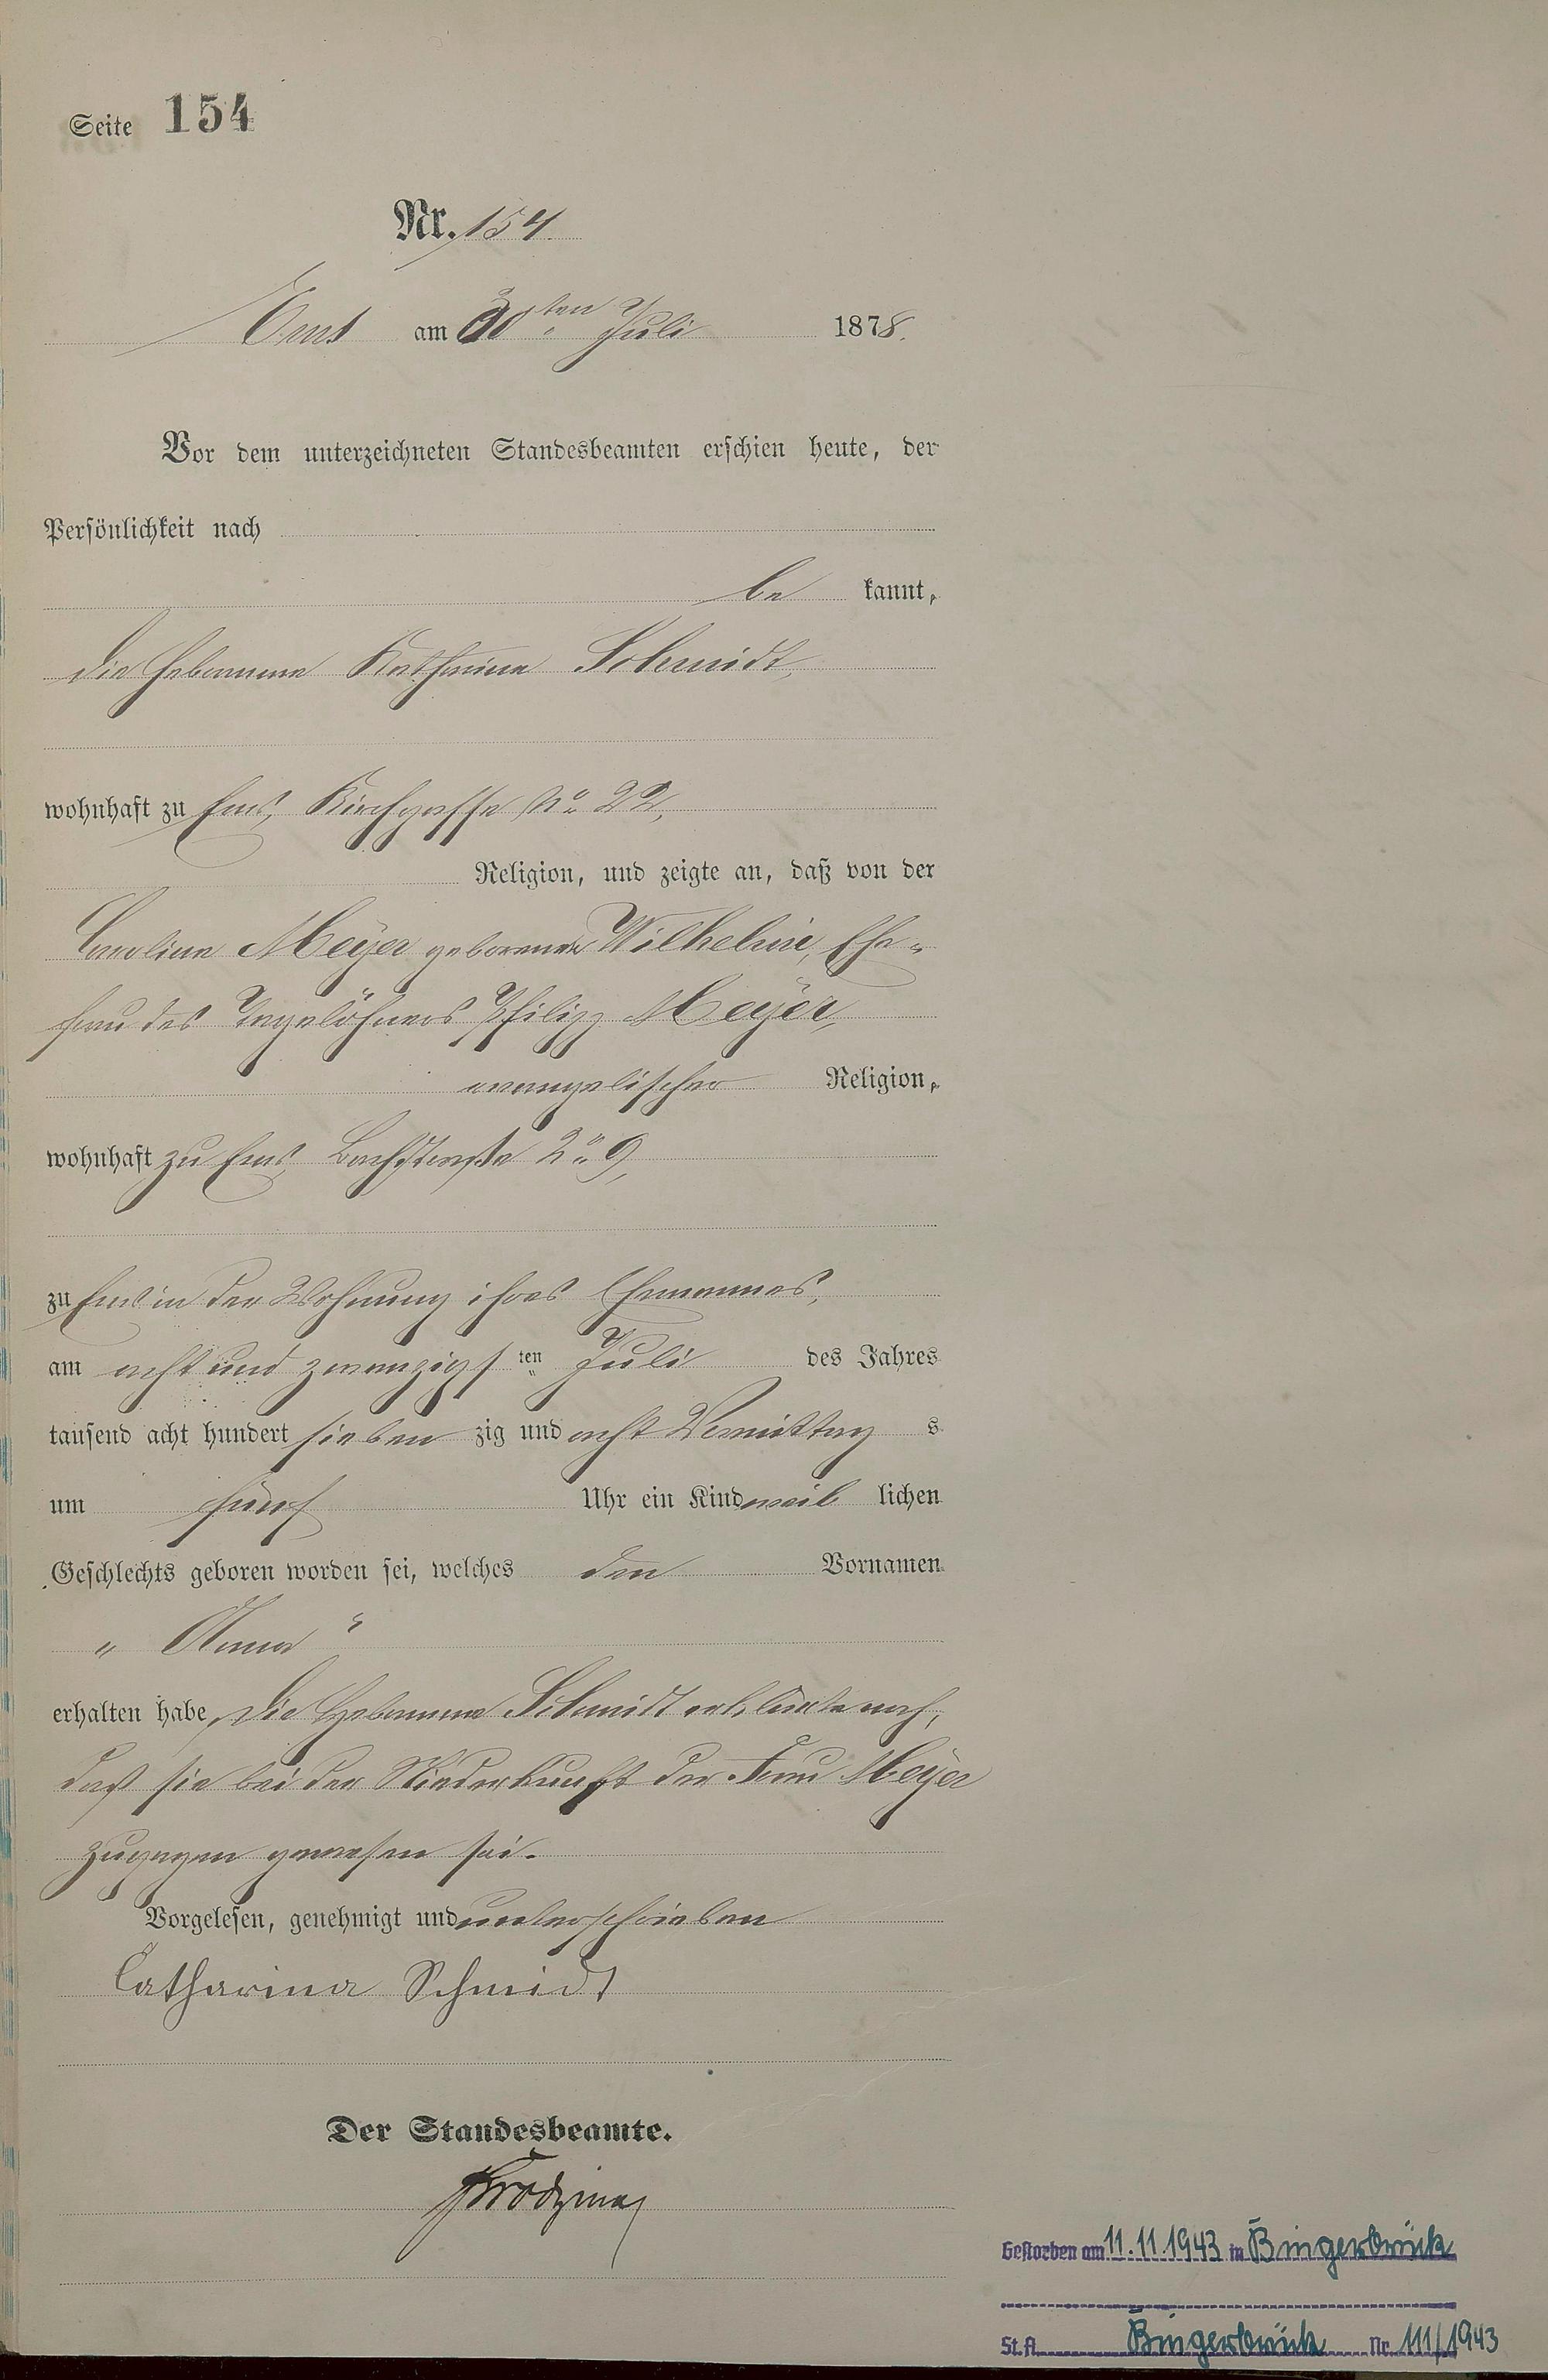 Seite 154
Nr. 154.
Ems am 30ten Juli 1878.
Vor dem unterzeichneten Standesbeamten erschien heute, der
Persönlichkeit nach
be kannt,
die Hebamme Katharina Schmidt,
wohnhaft zu Ems, Kirchgasse No 22,
Religion, und zeigte an, daß von der
Caroline Meÿer geborenen Wilhelmi, Ehe-
frau des Tagelöhners Philipp Meÿer,
evangelischer Religion,
wohnhaft zu Ems, Bachstraße 9,
zu Ems in der Wohnung ihres Ehemannes,
am acht und zwanzigsten Juli des Jahres
tausend acht hundert sieben zig und acht Vormittag s
um fünf Uhr ein Kind weib lichen
Geschlechts geboren worden sei, welches den Vornamen
„Anna“
erhalten habe, die Hebamme Schmidt erklärte noch,
daß sie bei der Niederkunft der Frau Meÿer
zugegen gewesen sei.
Vorgelesen, genehmigt und unterschrieben
Catharina Schmidt
Der Standesbeamte.
Gestorben am 11.11.1943 in Bingerbrück
St.A. Bingerbrück Nr. 111/1943